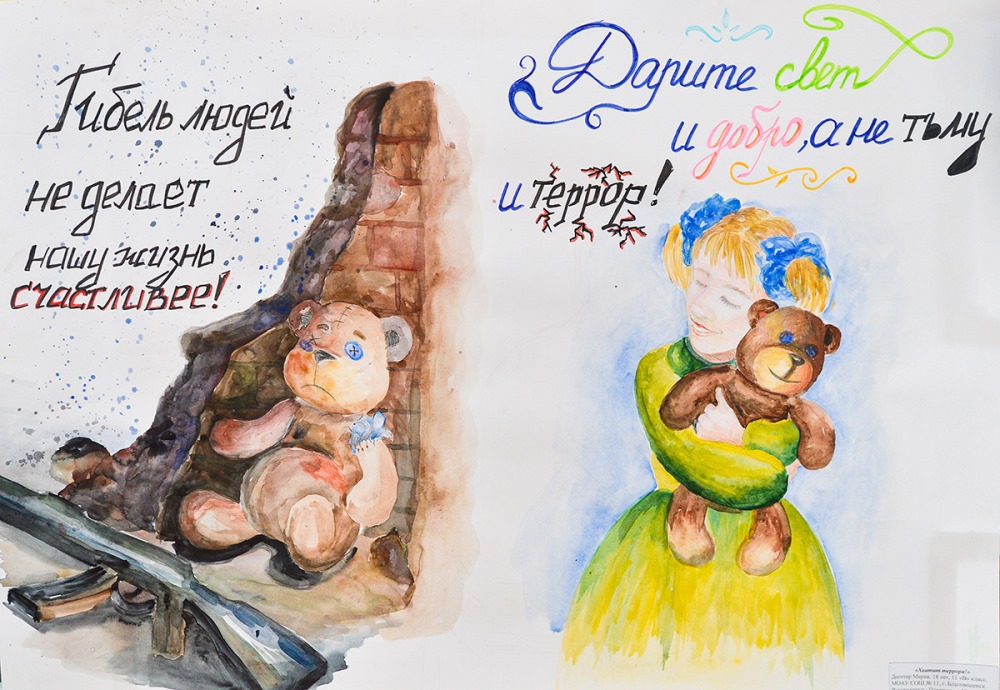 Гибель людей
не делает
нашу жизнь
счастливее!
Дарите свет
и добро, а не тьму
и террор!
«Хватит террора!»
Мария, 18 лет, 11 «В» класс,
МОАУ СОШ № 11, г. Благовещенск